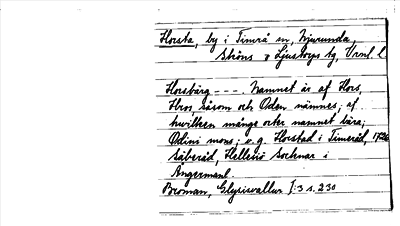 Horsta, by i Timrå sn, Njurunda,
Ströns o Ljustorps tg, Vrnl. l.
Horsbärg - - - - Namnet är af Hors,
Hros, såsom och Oden nämnes; af
hwilken många orter namnet bära;
Odins mons; v.g. Horstad i Timeråd, 1726
Säberåd, Hellesiö socknar i
Ångermanl.
Broman, Glysisvallur I:3 s. 230